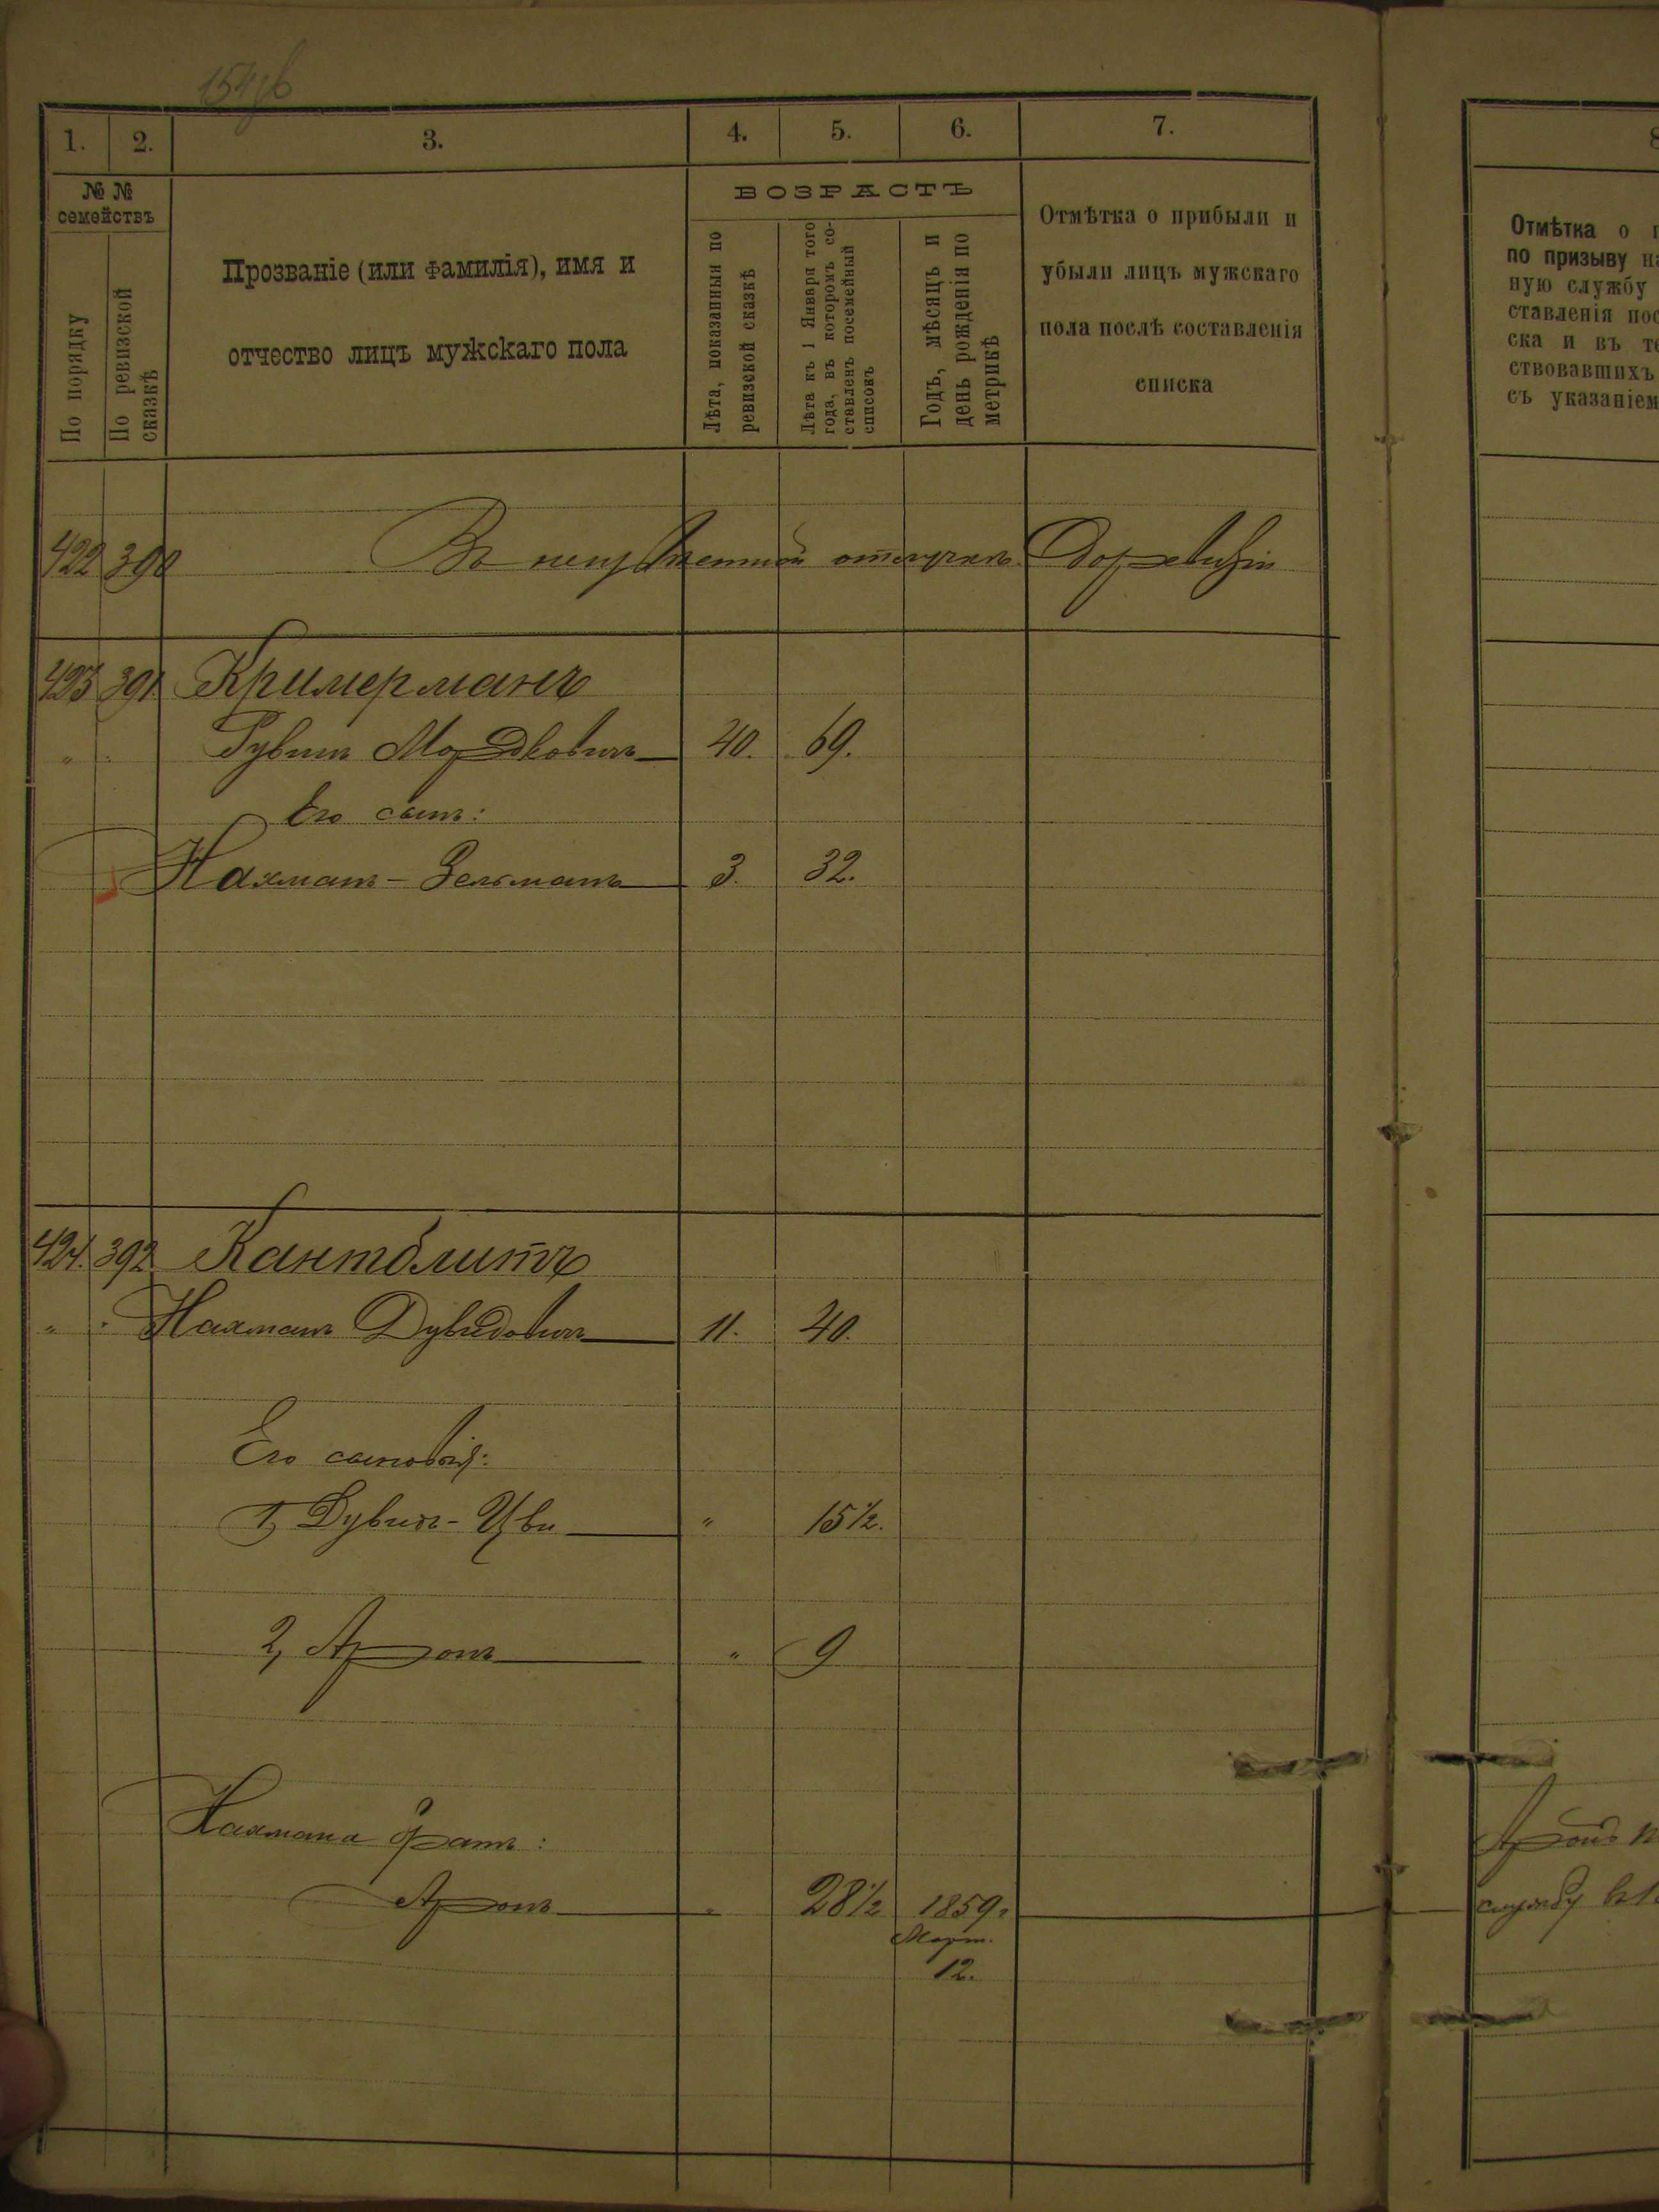 1. 2. 3. 4. 5. 6. 7.
№ №
семействъ
По порядку
По ревизской
сказкѣ
Прозваніе (или фамилія), имя и
отчество лицъ мужскаго пола
ВОЗРАСТЪ
Лѣта, показанныя по
ревизской сказкѣ
Лѣта къ 1 Января того
года, въ которомъ со-
ставленъ посемейный
списокъ
Годъ, мѣсяцъ и
день рожденія по
метрикѣ
Отмѣтка о прибыли и
убыли лицъ мужскаго
пола послѣ составленія
списка
422 390 Въ отлучкѣ
423 391 Кримерманъ
" " Рувинъ Мордковичъ 40. 69.
Его сынъ:
Нахманъ-Зельманъ 3. 32.
424. 392 Кантблитъ
" " Нахманъ Дувидовичъ 11. 40.
Его сыновья:
1, Дувидъ-Цви " 15½.
2, Аронъ " 9
Нахмана братъ:
Аронъ " 28½ 1859г
Март.
12.
8
Отмѣтка о
по призыву
ную службу
ставленія
ска и въ
ствовавшихъ
съ
Аронъ
службу